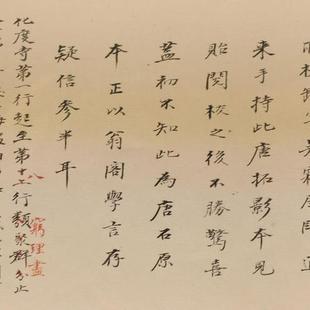 来手持此唐拓影本見
貽閱校之後不勝驚喜
蓋初不知此為唐石原
本正以翁閣學言存
疑信參半耳
化度寺第一行起至第十六行類聚群分止
八
窮理盡